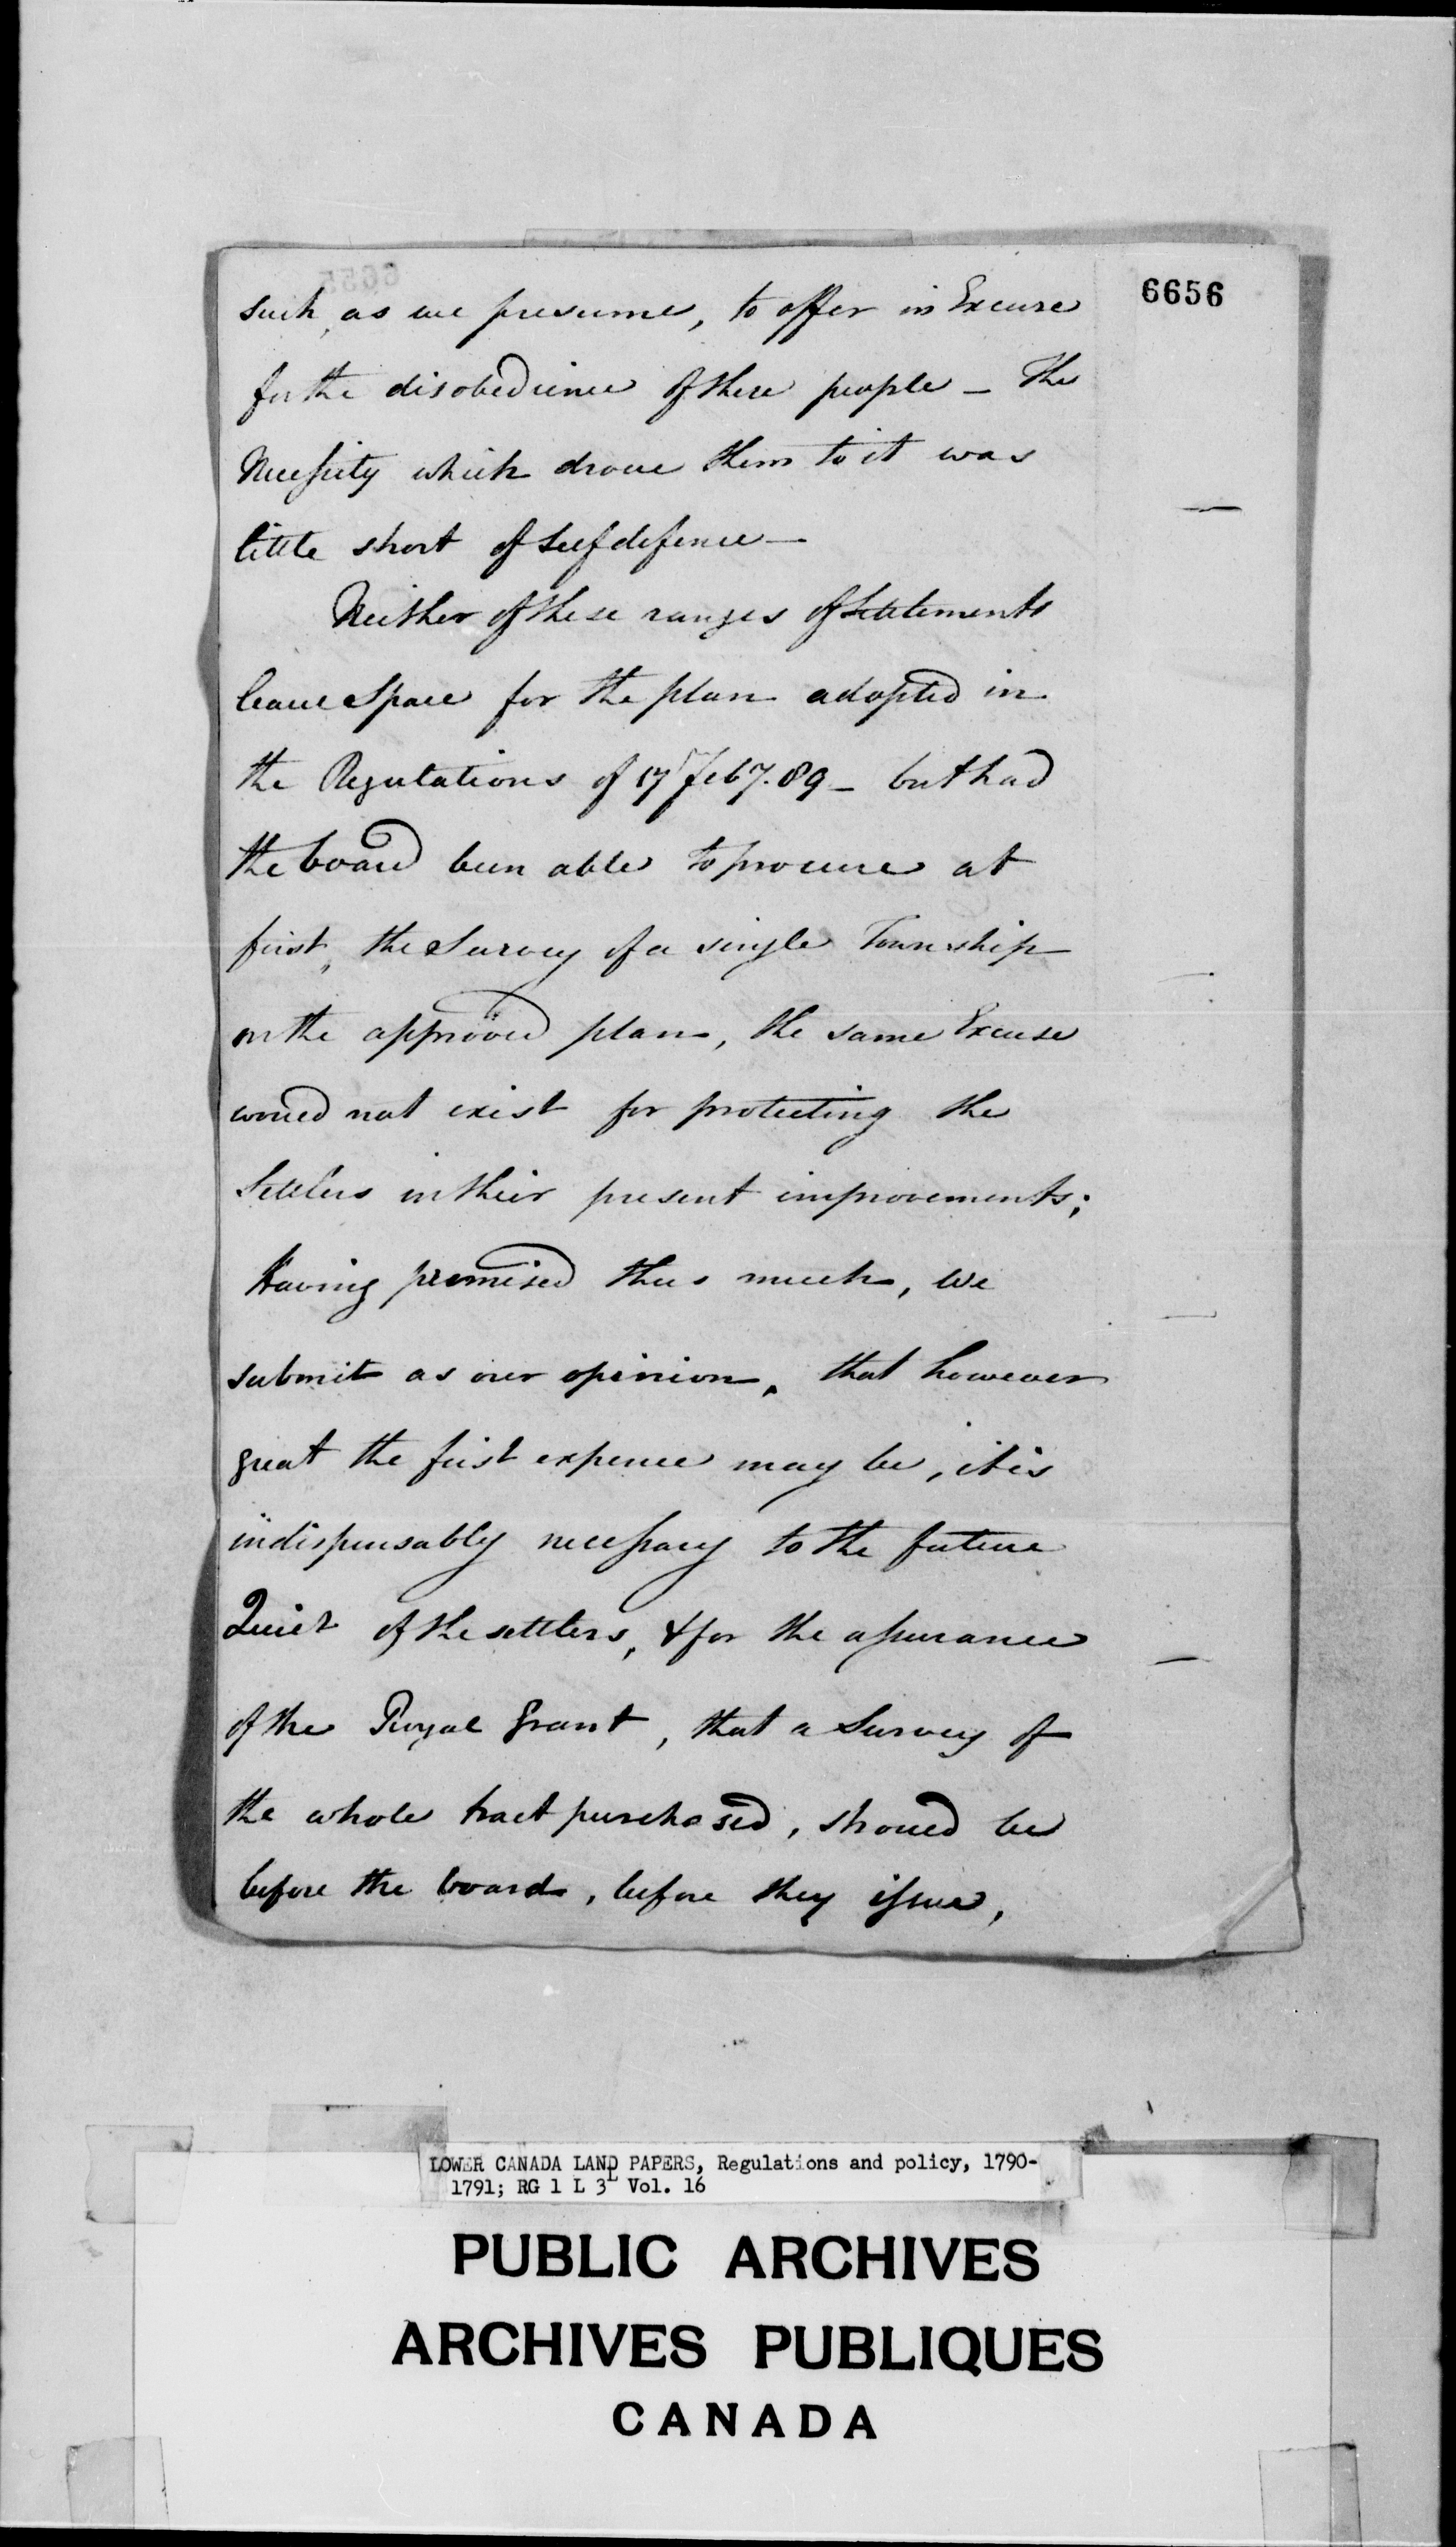 6656
such, as we presume, to offer in Excuse
for the disobedience of these people — The
Necessity which drove them to it was
little short of Self defence —
Neither of these ranges of Settlements
leave Space for the plan adopted in
the Regulations of 17 Feb 7.89 — but had
the board been able to procure at
first, the Survey of a single Township
on the approved plan, the same Excuse
would not exist for protecting the
Settlers in their present improvements;
Having premised thus much, we
submit as our opinion, that however
great the first expence may be, it is
indispensably necessary to the future
Quiet of the settlers, & for the assurance
of the Royal Grant, that a Survey of
the whole tract purchased, should be
before the board, before they issue,
LOWER CANADA LAND PAPERS, Regulations and policy, 1790-
1791; RG 1 L 3L Vol. 16
PUBLIC ARCHIVES
ARCHIVES PUBLIQUES
CANADA